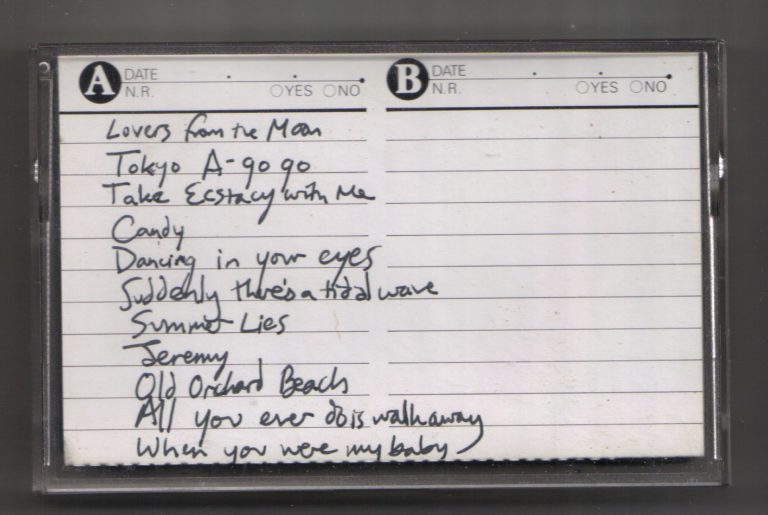 A DATE
N.R. YES NO
B DATE
N.R. YES NO
Lovers from the Moon
Tokyo A-go go
Take Ecstacy with Me
Candy
Dancing in your eyes
Suddenly there's a tidal wave
Summer Lies
Jeremy
Old Orchard Beach
All you ever do is walk away
When you were my baby